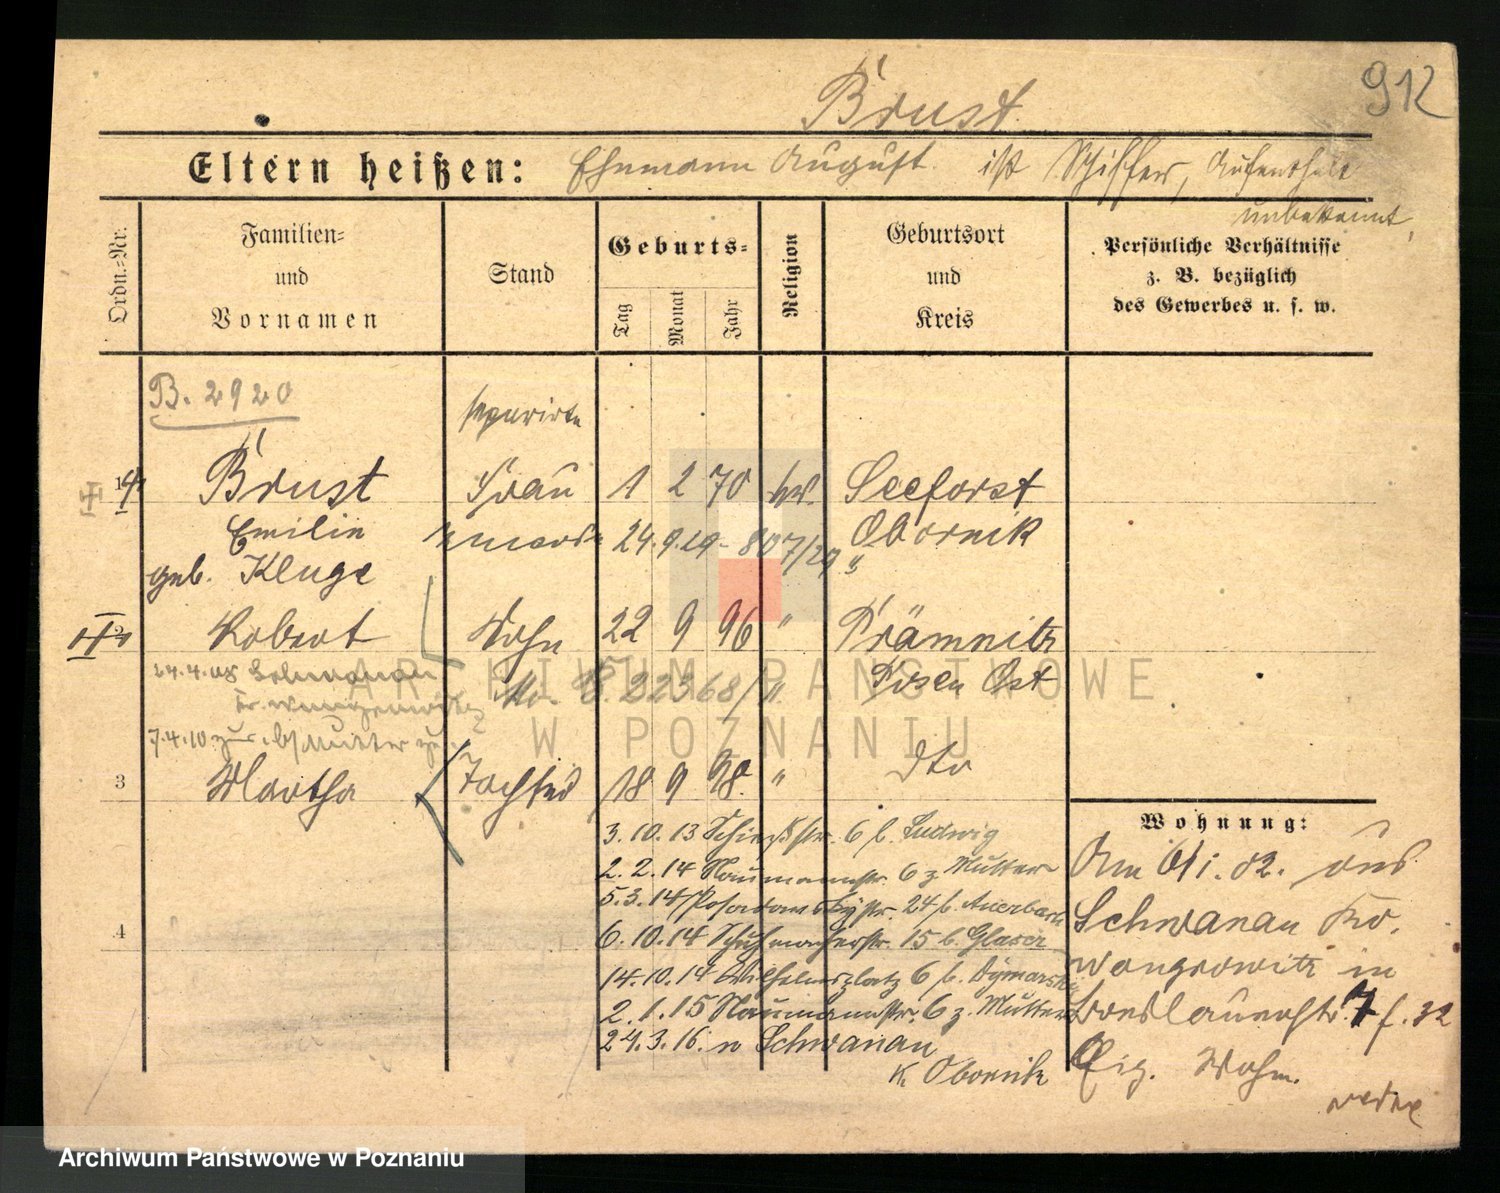 912
Brust
Eltern heißen: Ehemann August ist Schiffer, Aufenthalt
unbekannt,
Ordn.-Nr.
Familien-
und
Vornamen
Stand
Geburts-
Tag
Monat
Jahr
Religion
Geburtsort
und
Kreis
Persönliche Verhältnisse
z. B. bezüglich
des Gewerbes u. s. w.
B. 2920
separirte
1 Brust Frau 1 2 70 ev. Seeforst
Emilie 24.9.29 Obornik
geb. Kluge "
2 Robert Sohn 22 9 96 " Prämnitz
24.4.08 Schwanau Posen Ost
7.4.10 zur. b/Mutter
3 Martha Tochter 18 9 98. " dto
3.10.13 Schießstr. 6 b. Ludwig
2.2.14 Naumannstr. 6 z. Mutter
5.3.14 Posadowskystr. 24 b. Auerbach
4
6.10.14 Schuhmacherstr. 15 b. Glaser
14.10.14 Wilhelmsplatz 6 b. Dymarski
2.1.15 Naumannstr. 6 z. Mutter
24.3.16. n Schwanau
K. Obornik
Wohnung:
Am 6/1.02. aus
Schwanau Kr.
Wongrowitz in
Breslauerstr.
Eig. Wohn.
ARCHIWUM PAŃSTWOWE
W POZNANIU
Archiwum Państwowe w Poznaniu